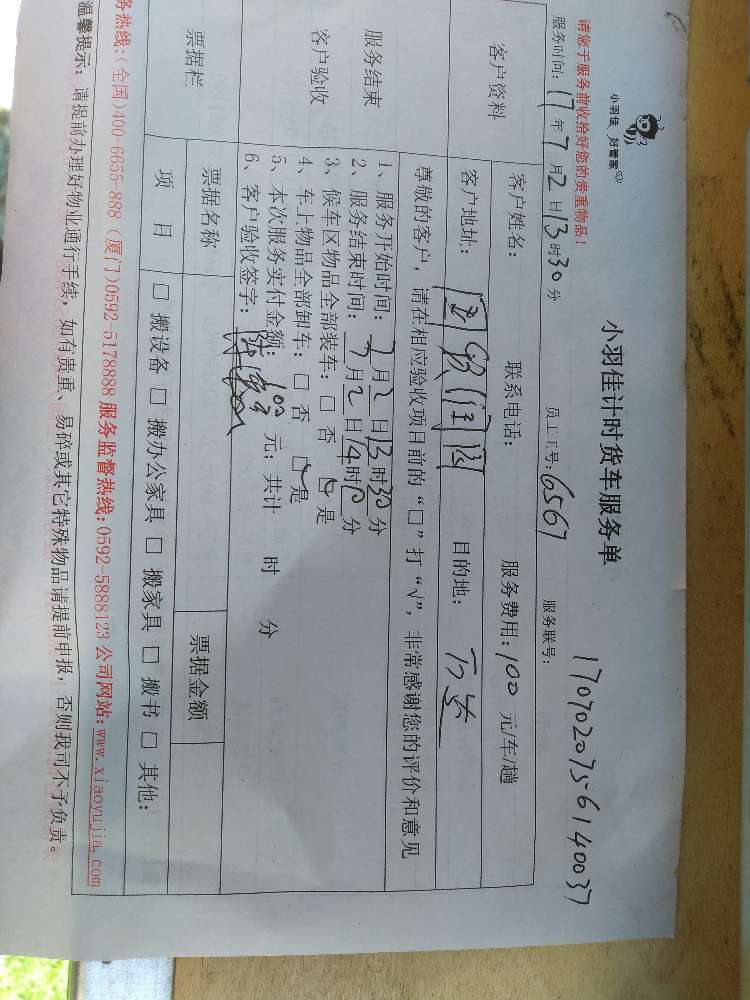 小羽佳 好管家
小羽佳计时货车服务单
17070207561 40037
请您于服务前收拾好您的贵重物品!
服务时间: 17 年 7 月 2 日 13 时 30 分 员工工号: 6567 服务联号:
客户资料
客户姓名: 联系电话: 服务费用: 100 元/车/趟
客户地址: 目的地:
尊敬的客户, 请在相应验收项目前的“□”打“√”, 非常感谢您的评价和意见
服务结束
客户验收
1、服务开始时间: 7 月 2 日 13 时 30 分
2、服务结束时间: 7 月 2 日 14 时 分
3、候车区物品全部装车: □ 否 □ 是
4、车上物品全部卸车: □ 否 □ 是
5、本次服务实付金额: 100 元; 共计 时 分
6、客户验收签字:
票据栏
票据名称 票据金额
项 目 □ 搬设备 □ 搬办公家具 □ 搬家具 □ 搬书 □ 其他:
务热线:(全国)400-6655-888 (厦门)0592-5178888 服务监督热线:0592-5888123 公司网站:www.xiaoyujia.com
温馨提示: 请提前办理好物业通行手续, 如有贵重、易碎或其它特殊物品请提前申报, 否则我司不予负责。